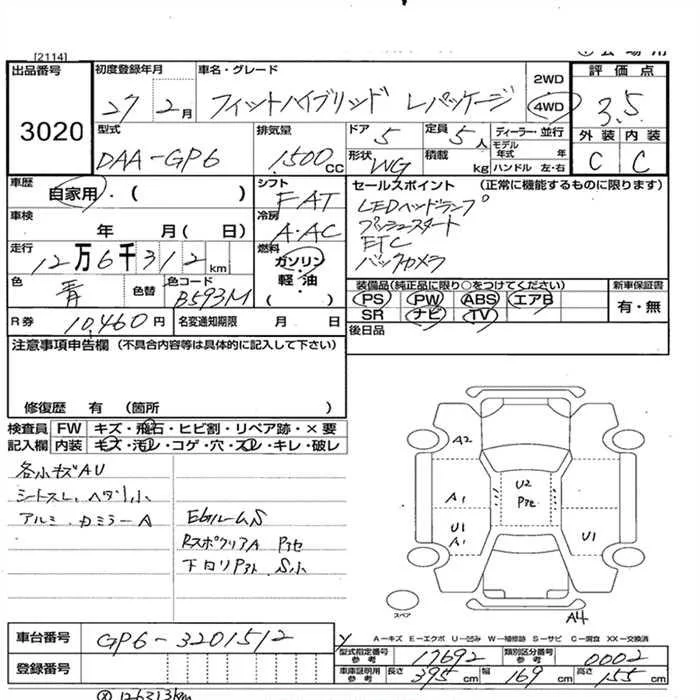 [2114]
出品番号 初度登録年月 車名・グレード 2WD 評価点
3020 27 2月 フィットハイブリッド Lパッケージ 4WD 3.5
型式 排気量 ドア 5 定員 5人 ディーラー・並行 外装 内装
DAA-GP6 1500cc 形状 WG 積載 kg モデル年式 年 ハンドル 左・右 C C
車歴 自家用・( ) シフト FAT セールスポイント (正常に機能するものに限ります)
車検 年 月( 日) 冷房 A・AC LEDヘッドランプ
プッシュスタート
走行 12万6千312km 燃料 ガソリン・軽油・( ) ETC
バックカメラ
色 青 色替 色コード B593M 装備品(純正品に限り○をつけてください) 新車保証書
PS PW ABS エアB 有・無
R券 10,460円 名変通知期限 月 日 SR ナビ TV
注意事項申告欄(不具合内容等は具体的に記入して下さい) 後日品
修復歴 有 (箇所 )
検査員 FW キズ・飛石・ヒビ割・リペア跡・×要
記入欄 内装 キズ・汚レ・コゲ・穴・スレ・キレ・破レ
各小キズAU
シートスレ、ヘタリ小
アルミ、カミラーA
A2
A1
U2
U1
A1
U1
スペア
A4
A-キズ E-エクボ U-凹ミ W-補修跡 S-サビ C-腐食 XX-交換済
車台番号 GP6-3201512 型式指定番号 参考 17692 類別区分番号 参考 0002
登録番号 車庫証明用 参考 長さ 395cm 幅 169cm 高さ 155cm
126313km